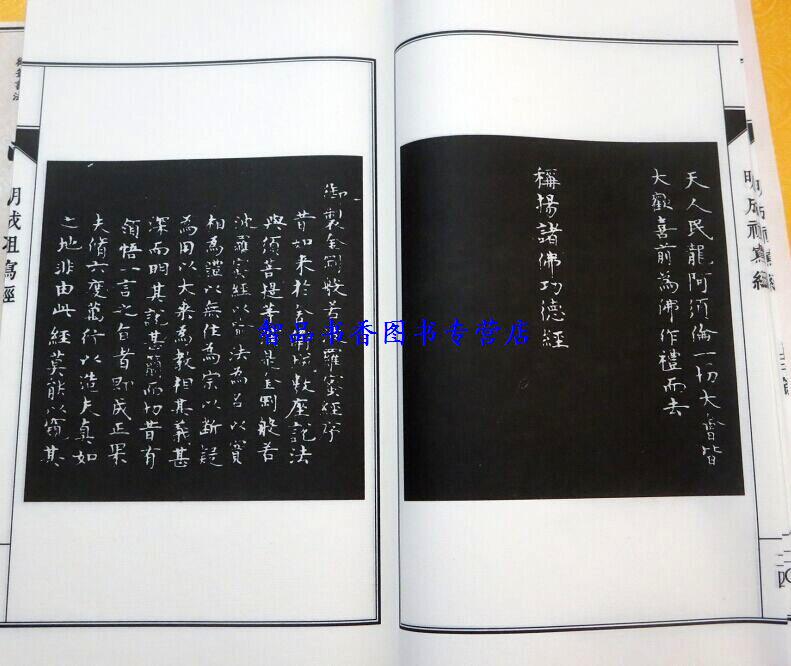 明成祖寫經
天人民龍阿須倫一切大會皆
大歡喜前為佛作禮而去
稱揚諸佛功德經
御製金剛般若波羅蜜經序
昔如來於座說法
與須菩提是金剛般若
波羅蜜經以法為名以實
相為體以無住為宗以斷疑
為用以大乘為教相其義甚
深而明其說甚簡而切昔有
領悟一言之旨者即成正果
夫脩六度萬行以造夫真如
之地非由此經莫能以窺其
明成祖寫經
智品书香图书专营店